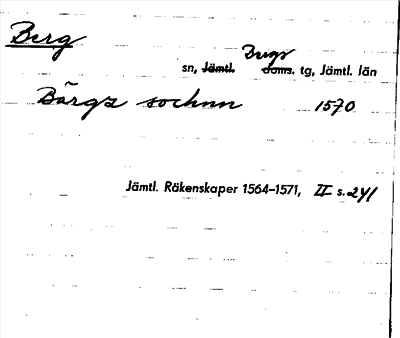 Berg
Bergs
sn, Jämtl. doms. tg, Jämtl. län
Bärgz sochnn 1570
Jämtl. Räkenskaper 1564-1571, II s.241